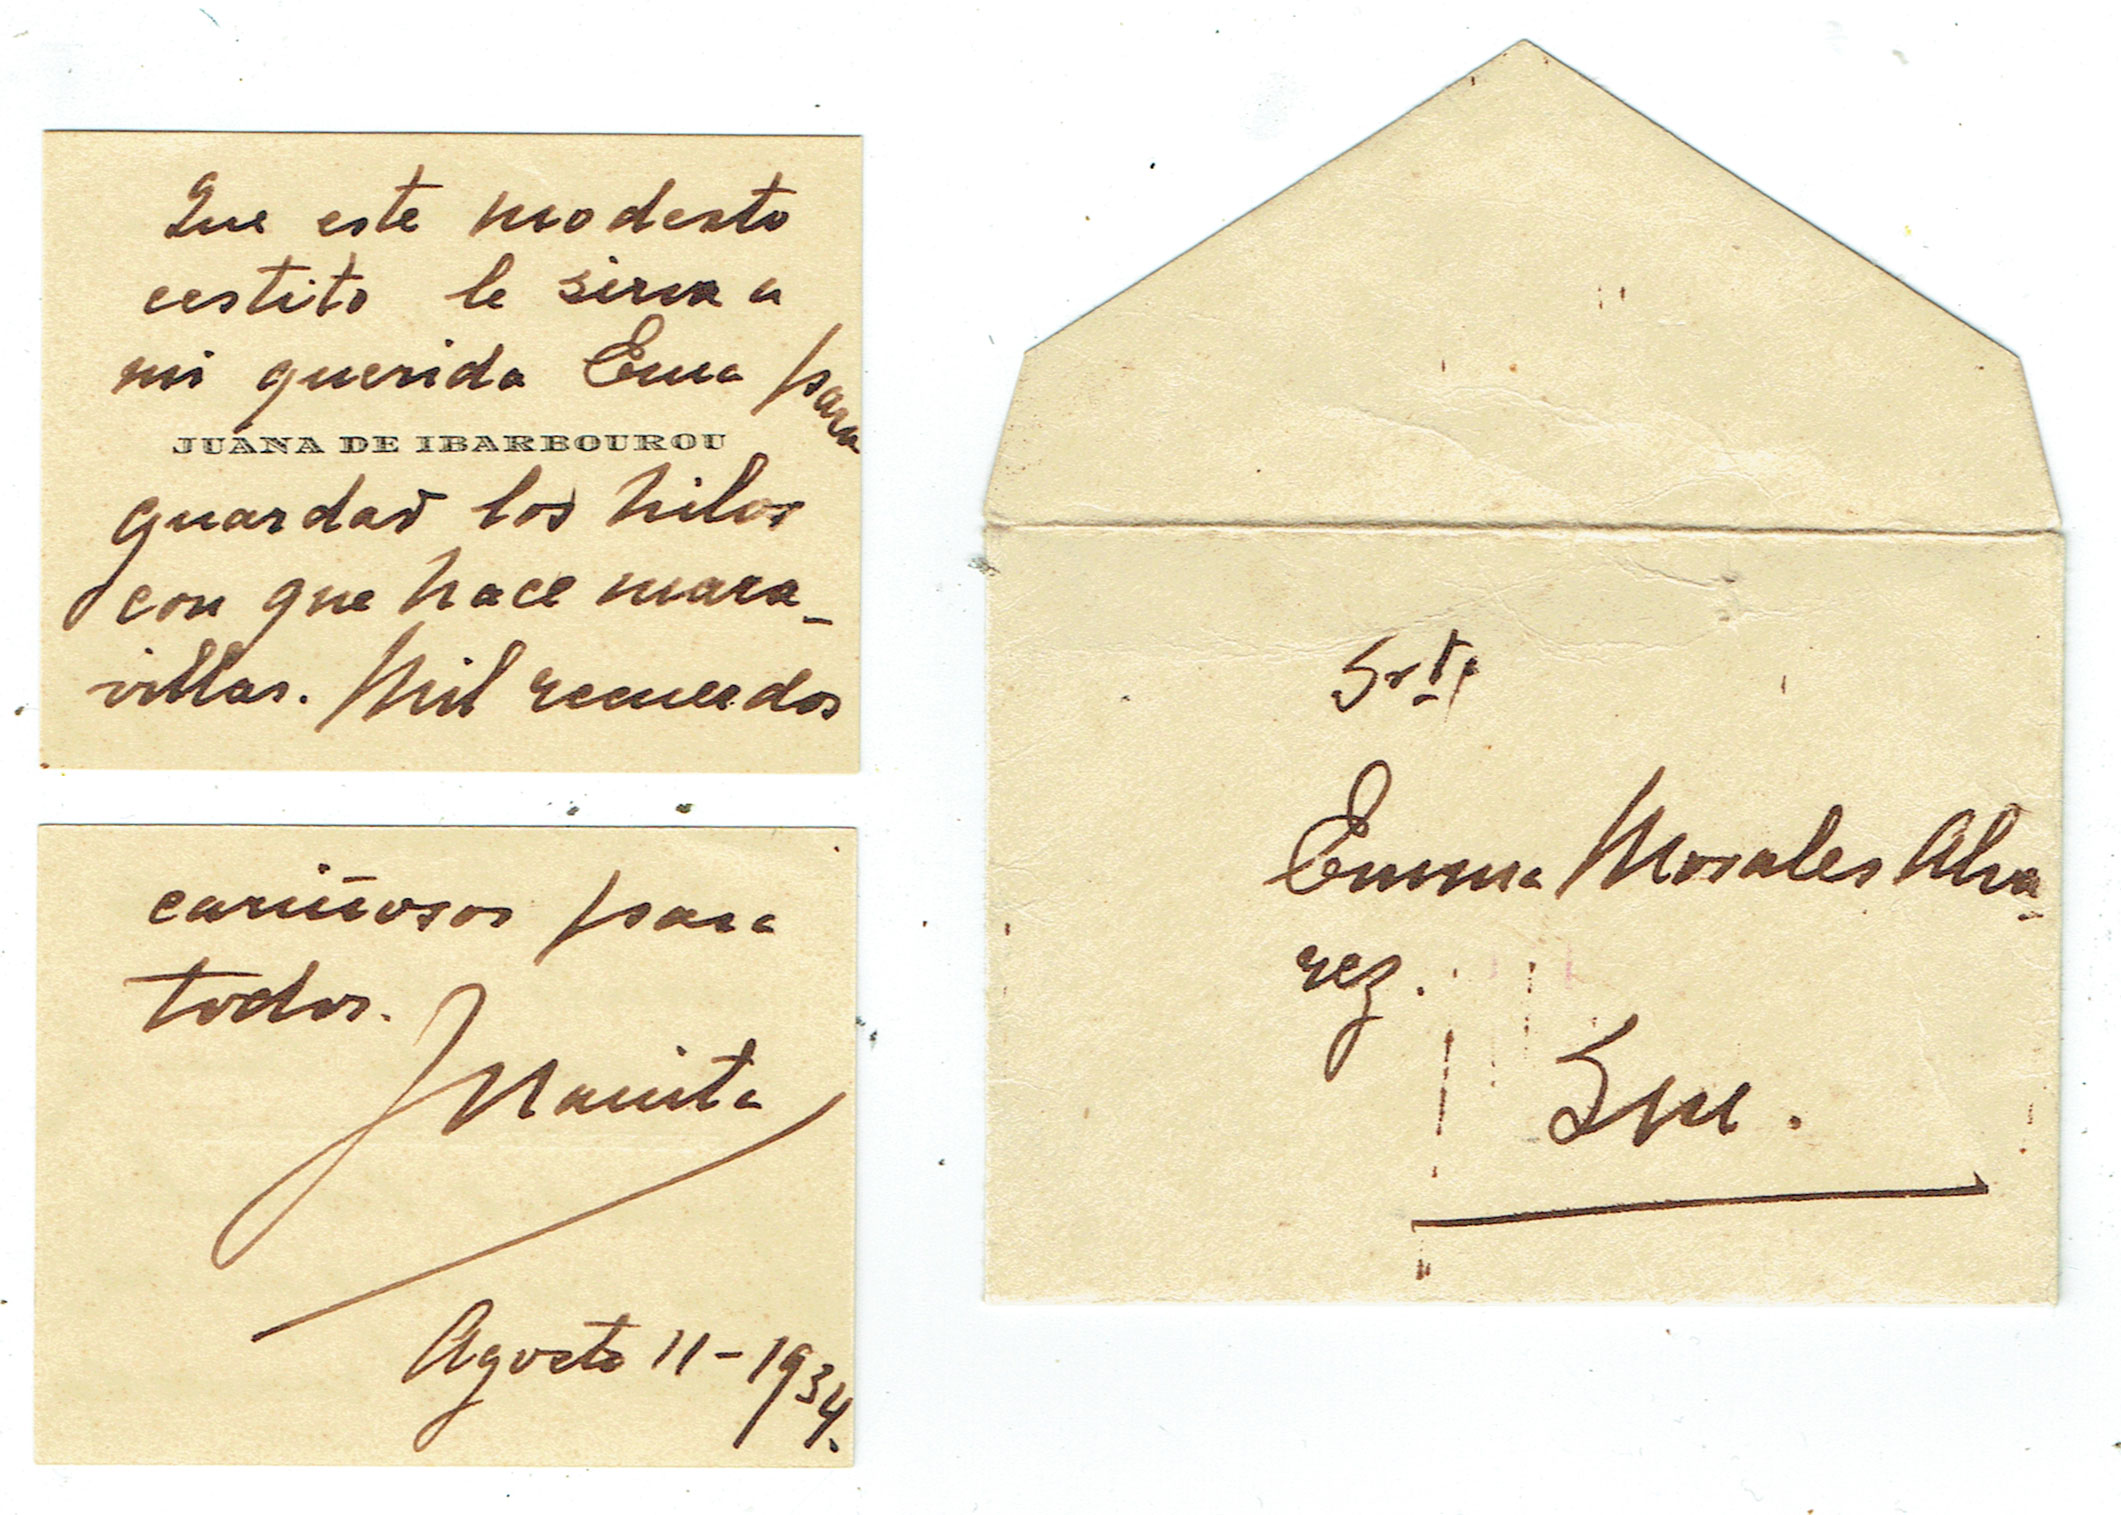 Que este modesto
cestito le sirva a
mi querida Ema para
JUANA DE IBARBOUROU
guardar los hilos
con que hace mara-
villas. Mil recuerdos
cariñosos para
todos.
Juanita
Agosto 11-1934.
Srta
Emma Morales Alva-
rez.